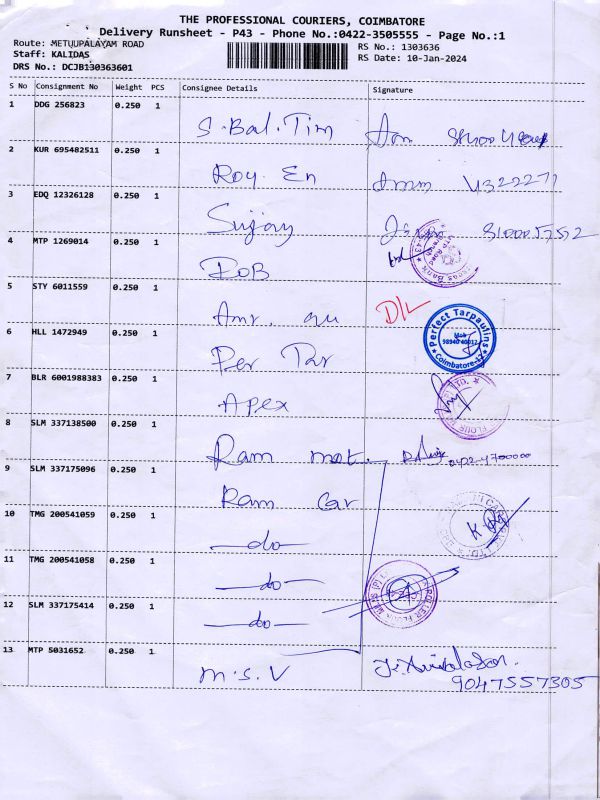 THE PROFESSIONAL COURIERS, COIMBATORE
Delivery Runsheet - P43 - Phone No.:0422-3505555 - Page No.:1
Route: METUUPALAYAM ROAD
RS No.: 1303636
Staff: KALIDAS
RS Date: 10-Jan-2024
DRS No.: DCJB130363601
S No Consignment No Weight PCS Consignee Details Signature
1 DDG 256823 0.250 1
S. Bal. Tim
2 KUR 695482511 0.250 1
Roy. En
3 EDQ 12326128 0.250 1
Sujay
4 MTP 1269014 0.250 1
5 STY 6011559 0.250 1
D/L
Perfect Tarpaulins
Mob
98940 40012
Coimbatore-12
6 HLL 1472949 0.250 1
Per Tar
7 BLR 6001988383 0.250 1
Apex
8 SLM 337138500 0.250 1
Ram mot.
0422-4700000
9 SLM 337175096 0.250 1
Ram Car
10 TMG 200541059 0.250 1
-do-
11 TMG 200541058 0.250 1
-do-
12 SLM 337175414 0.250 1
-do-
13 MTP 5031652 0.250 1
M.S.V
9047557305